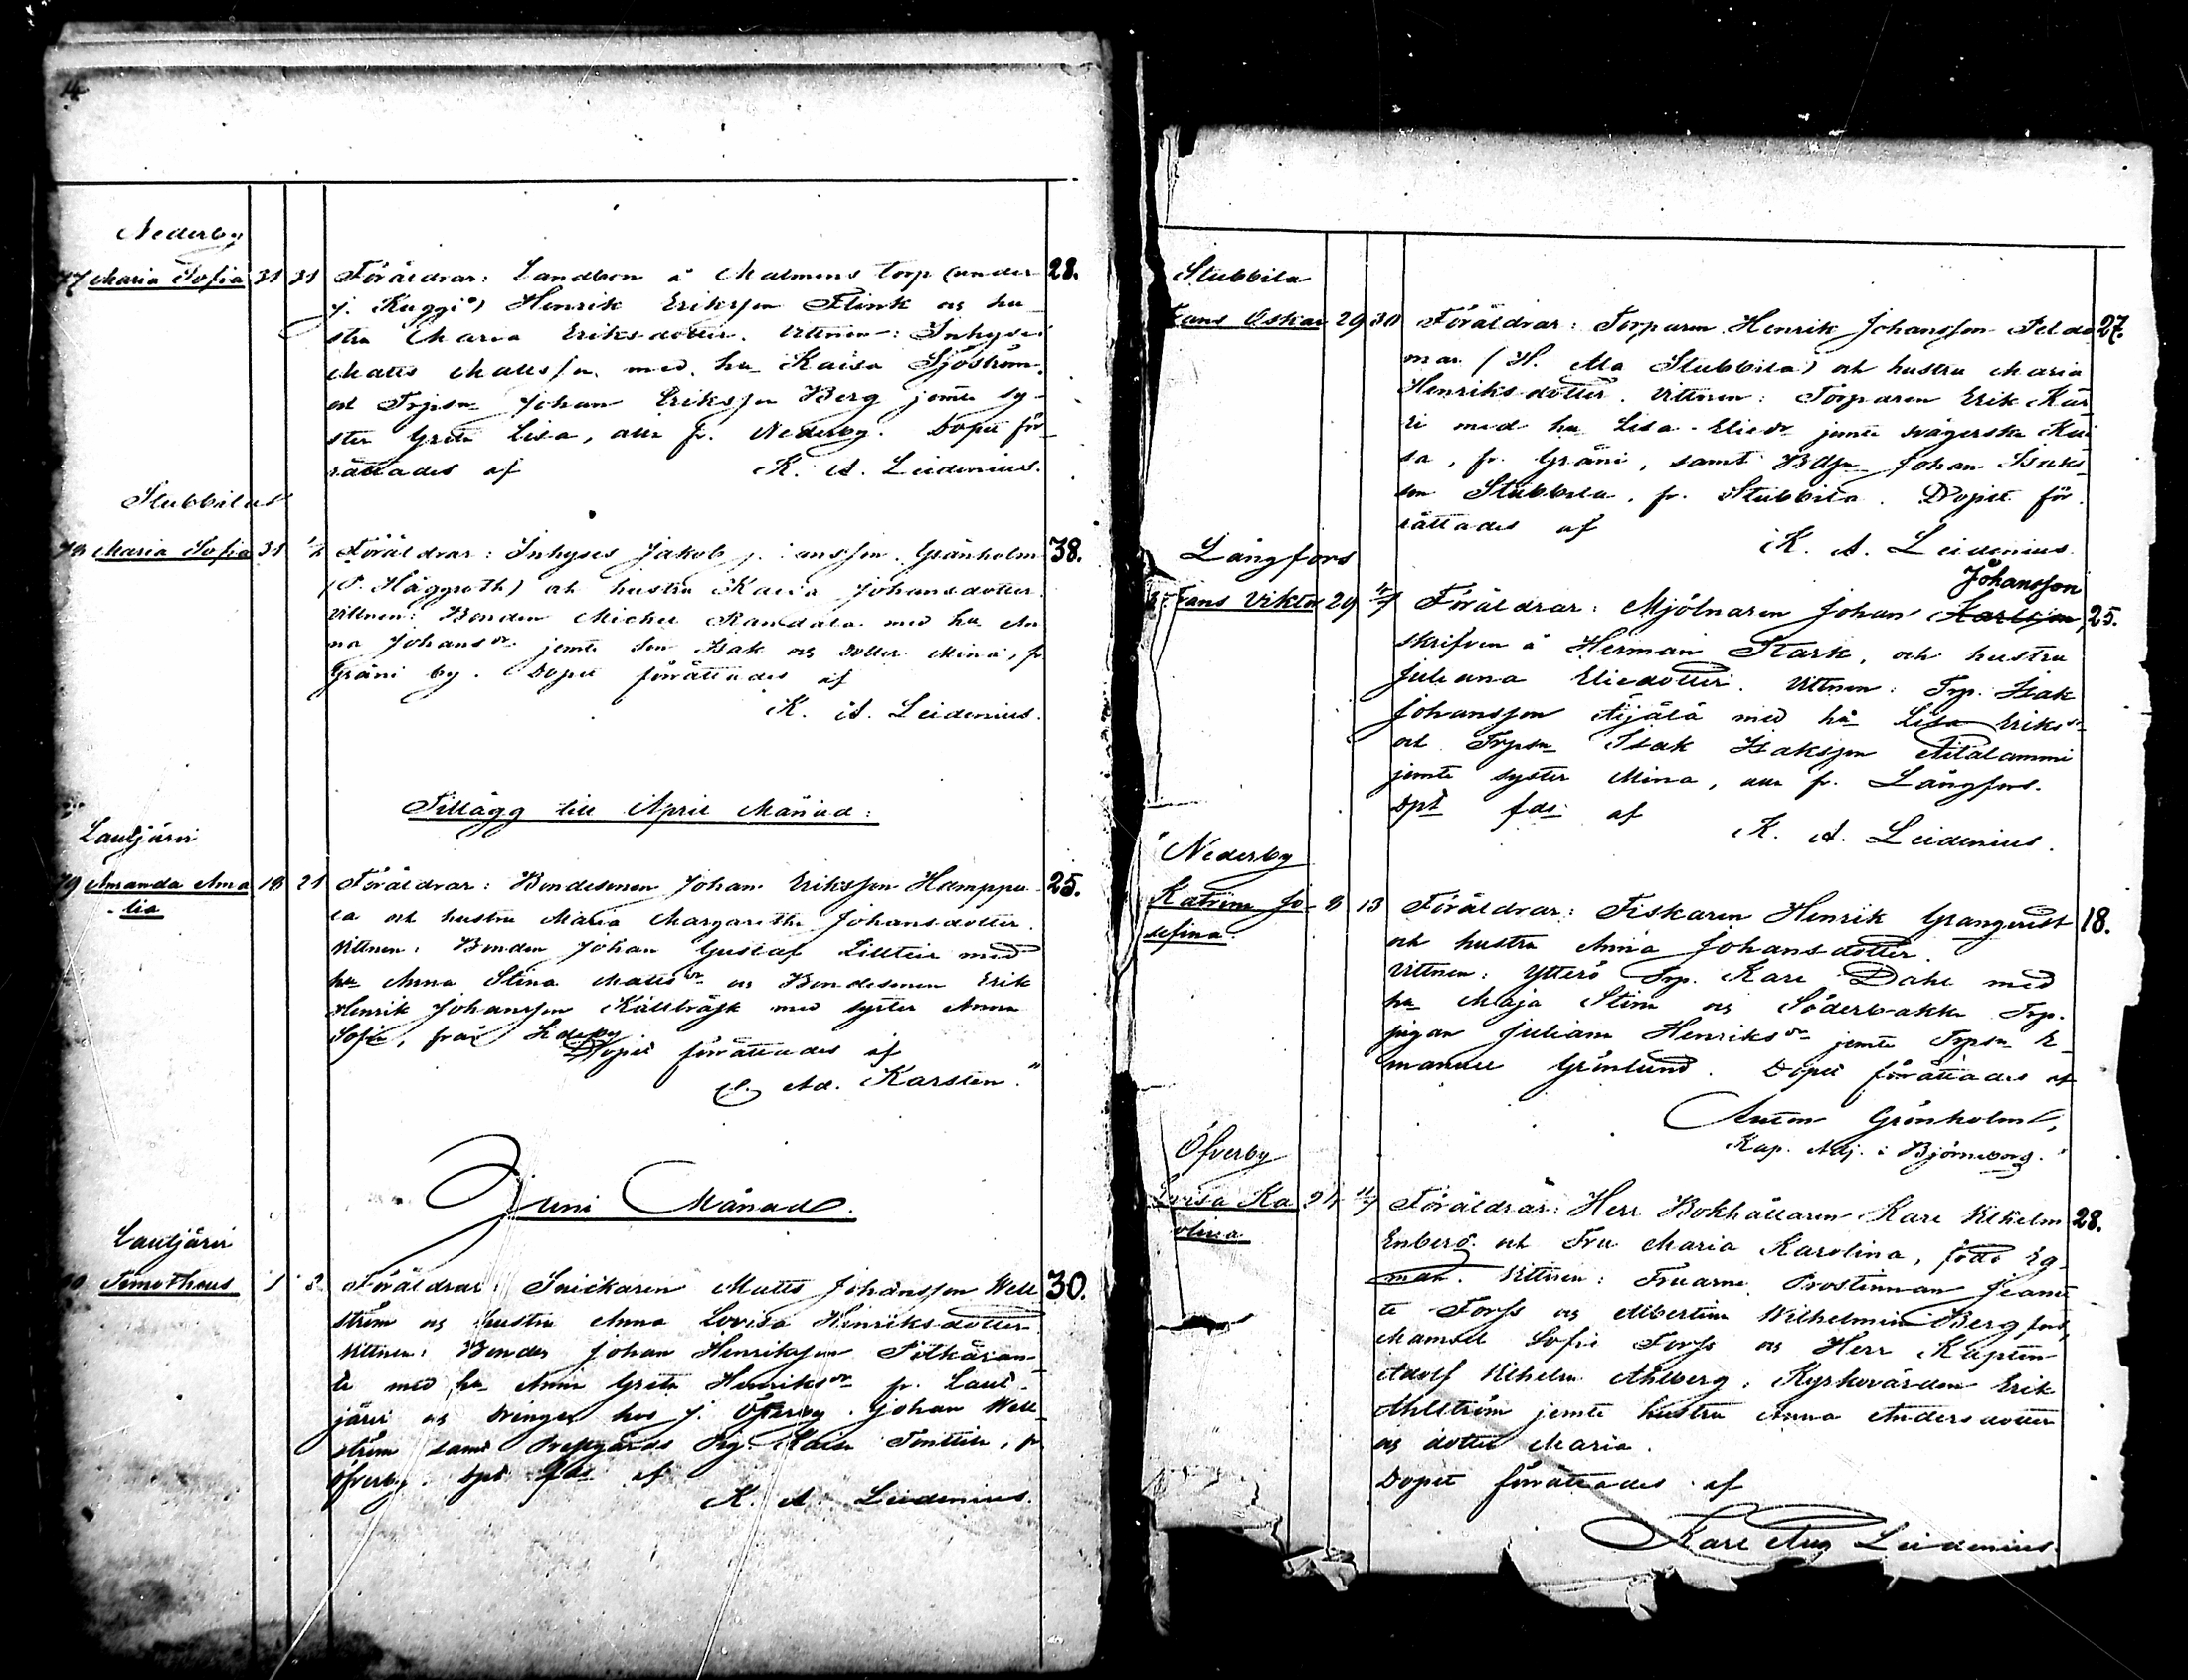 14
Nederby
77 Maria Sofia 31 31 Föräldrar: Landbon å Malmens torp (under 28.
j. Kuggi) Henrik Eriksson Flink och hu
stru Maria Eriksdotter. Vittnen: Inhyses
Matts Mattsson med hu Kaisa Sjöström
och Trpsn Johan Eriksson Berg jemte sy-
ster Greta Lisa, alla fr. Nederby. Dopet för-
rättades af K. A. Leidenius.
Stubbila
78 Maria Sofia 31 1/6 Föräldrar: Inhyses Jakob Johansson Granholm 38.
(P. Häggroth) och hustru Kaisa Johansdotter.
Vittnen: Bonden Michel Randala med hu An
na Johansdr jemte son Isak och dotter Mina, fr
Gräni by. Dopet förrättades af
K. A. Leidenius.
Tillägg till April Månad:
Lautjärvi
79 Amanda Ama 18 21 Föräldrar: Bondesonen Johan Eriksson Hamppu 25.
-lia
la och hustru Maria Margaretha Johansdotter.
Vittnen: Bonden Johan Gustaf Lillteir med
hu Anna Stina Mattsdr och Bondesonen Erik
Henrik Johansson Källträsk med syster Anna
Sofia, från Sideby.
Dopet förrättades af
Ad. Karsten."
Juni Månad.
Lautjärvi
80 Timotheus 1 2 Föräldrar: Snickaren Matts Johansson Well 30.
ström och hustru Anna Lovisa Henriksdotter
Vittnen: Bonden Johan Henriksson Pitkäran-
ta med hu Anna Greta Henriksdr fr. Laut-
järvi och drängen hos j. Öfverby Johan Well
ström samt Prestgårds Pig. Kaisa Tonttila, fr
Öfverby. Dpt fds af
K. A. Leidenius.
Stubbila
Frans Oskar 29 30 Föräldrar: Torparen Henrik Johansson Feldt 27.
man (H. Ala Stubbila) och hustru Maria
Henriksdotter. Vittnen: Torparen Erik Kar
ri med hu Lisa Eliedr jemte svägerska Kai
sa, fr. Gräni, samt Bdsn Johan Isaks
son Stubbila, fr. Stubbila. Dopet för
rättades af
K. A. Leidenius.
Långfors
Johansson
Frans Viktor 29 4/7 Föräldrar: Mjölnaren Johan Karlsson, 25.
skrifven å Herman Stark, och hustru
Juliana Eliedotter. Vittnen: Trp. Isak
Johansson Äijälä med hu Lisa Eriksdr
och Trpsn Isak Isaksson Aitalammi
jemte syster Mina, alla fr. Långfors.
Dpt fds af
K. A. Leidenius.
Nederby
Katrina Jo- 8 13 Föräldrar: Fiskaren Henrik Granqvist 18.
sefina.
och hustru Anna Johansdotter.
Vittnen: Ytterö Trp. Karl Dahl med
hu Maja Stina och Söderbakka Trp.
pigan Juliana Henriksdr jemte Trpsn E-
manuel Grönlund. Dopet förrättades af
Anton Grönholm,
Kap. Adj. i Björneborg.
Öfverby
Lovisa Ka 24 11/7 Föräldrar: Herr Bokhållaren Karl Vilhelm 28.
rolina
Enberg och Fru Maria Karolina, född Eg-
man. Vittnen: Fruarne Prostinnan Jeanet
te Forss och Albertina Wilhelmina Bergfors,
Mamsell Sofie Forss och Herr Kapten
Adolf Vilhelm Ahlberg, Kyrkovärden Erik
Ahlström jemte hustru Anna Andersdotter
och dotter Maria.
Dopet förrättades af
Karl Aug Leidenius.